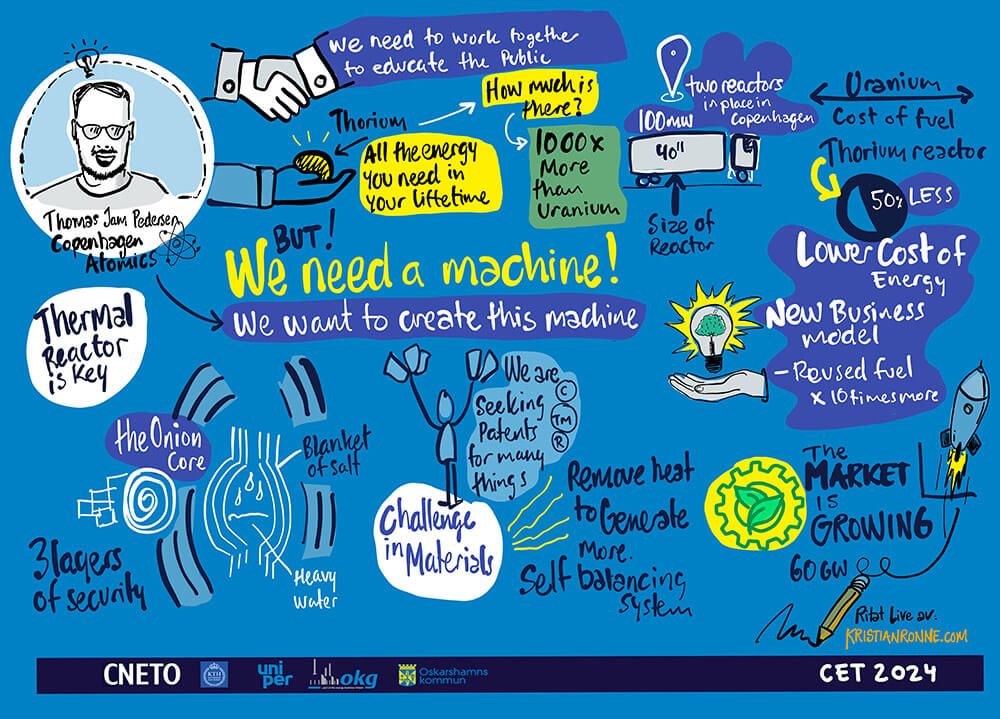 we need to work together
to educate the Public
Thomas Jam Pedersen
Copenhagen
Atomics
Thorium
How much is
there?
All the energy
you need in
your liftetime
1000x
More
than
Uranium
two reactors
in place in
Copenhagen
100MW
40"
Size of
Reactor
Uranium
Cost of fuel
Thorium reactor
50% LESS
BUT!
We need a machine!
We want to create this machine
Lower Cost of
Energy
New Business
model
- Reused fuel
x 10 times more
Thermal
Reactor
is key
the Onion
Core
Blanket
of Salt
Heavy
Water
3 layers
of security
We are
Seeking
Patents
for many
things
C
TM
R
Challenge
in Materials
Remove heat
to Generate
More.
Self balancing
System
The
MARKET
is
GROWING
60GW
Ritat Live av:
KRISTIANRONNE.COM
CNETO
KTH
uni
per
okg
Oskarshamns
kommun
CET 2024